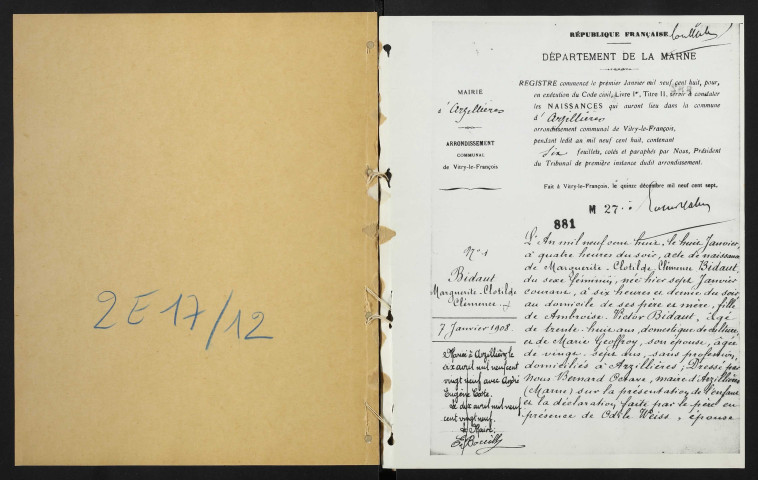 2 E 17/12
RÉPUBLIQUE FRANÇAISE
DÉPARTEMENT DE LA MARNE
MAIRIE
d'Arzillières
ARRONDISSEMENT
COMMUNAL
de Vitry-le-François
REGISTRE commencé le premier Janvier mil neuf cent huit, pour,
en exécution du Code civil, Livre Ier, Titre II, servir à constater
les NAISSANCES qui auront lieu dans la commune
d'Arzillières
arrondissement communal de Vitry-le-François,
pendant ledit an mil neuf cent huit, contenant
six feuillets, cotés et paraphés par Nous, Président
du Tribunal de première instance dudit arrondissement.
Fait à Vitry-le-François, le quinze décembre mil neuf cent sept.
M 27
881
N° 1
Bidaut
Marguerite-Clotilde
Clémence
7 Janvier 1908.
Mariée à Arzillières le
dix avril mil neuf cent
vingt neuf avec André
Eugène
Le dix avril mil neuf
cent vingt neuf.
Le Maire,
L'An mil neuf cent huit, le huit Janvier,
à quatre heures du soir, acte de naissance
de Marguerite-Clotilde Clémence Bidaut,
du sexe féminin, née hier sept Janvier
courant, à six heures et demie du soir
au domicile de ses père et mère, fille
de Ambroise-Victor Bidaut, âgé
de trente-huit ans, domestique de culture,
et de Marie Geoffroy, son épouse, âgée
de vingt-sept ans, sans profession,
domiciliés à Arzillières; Dressé par
Nous Bernard Octave, maire d'Arzillières
(Marne) sur la présentation de l'enfant
et la déclaration faite par le père en
présence de Odile Weiss, épouse